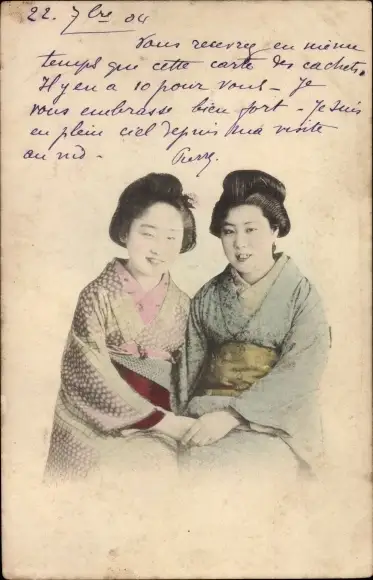 22. 7bre 04
Vous recevrez en même
temps que cette carte des cachets.
Il y en a 10 pour vous - Je
vous embrasse bien fort - Je suis
en plein ciel depuis ma visite
au nid -